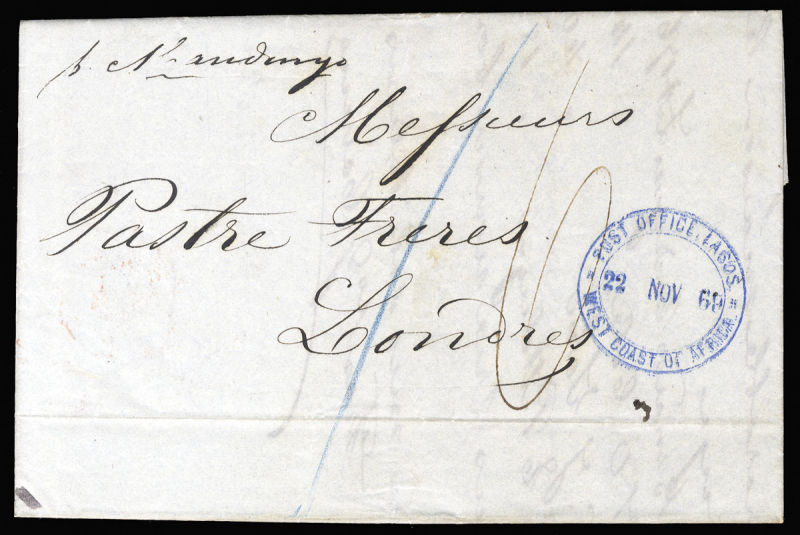 p. Mandingo
Messieurs
Pastre Freres
Londres
6
POST OFFICE, LAGOS.
22 NOV 69
WEST COAST OF AFRICA.